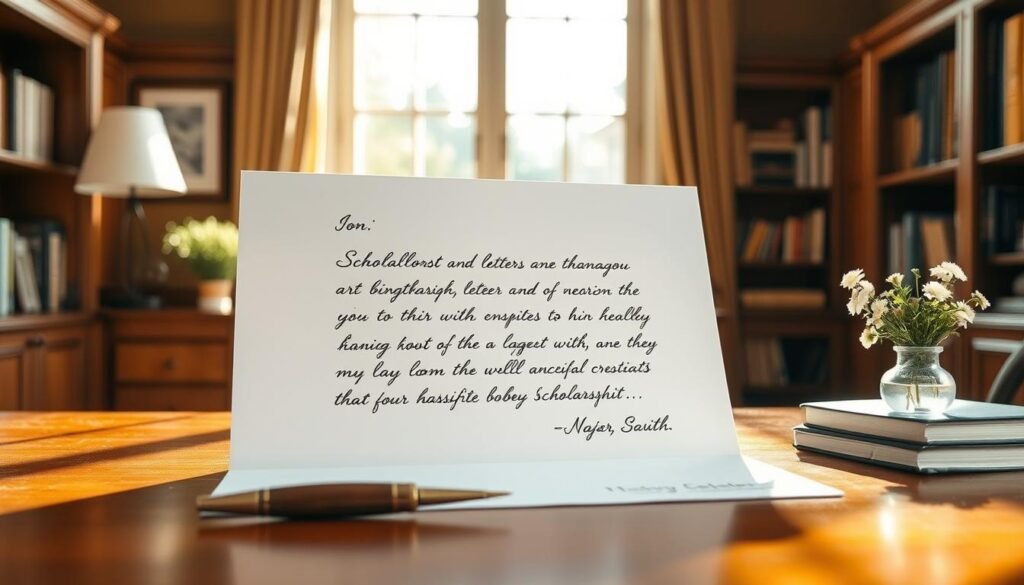 Ion:
Scholallorst and letters ane thanagou
art bingtharigh, leteer and of nearion the
you to thir with enspites to hin healley
haning hoot of the a lagect with, ane they
my lay loom the welll anceiful crestiats
that four hassifite bobey Scholarsphit...
-Najar, Sauith.